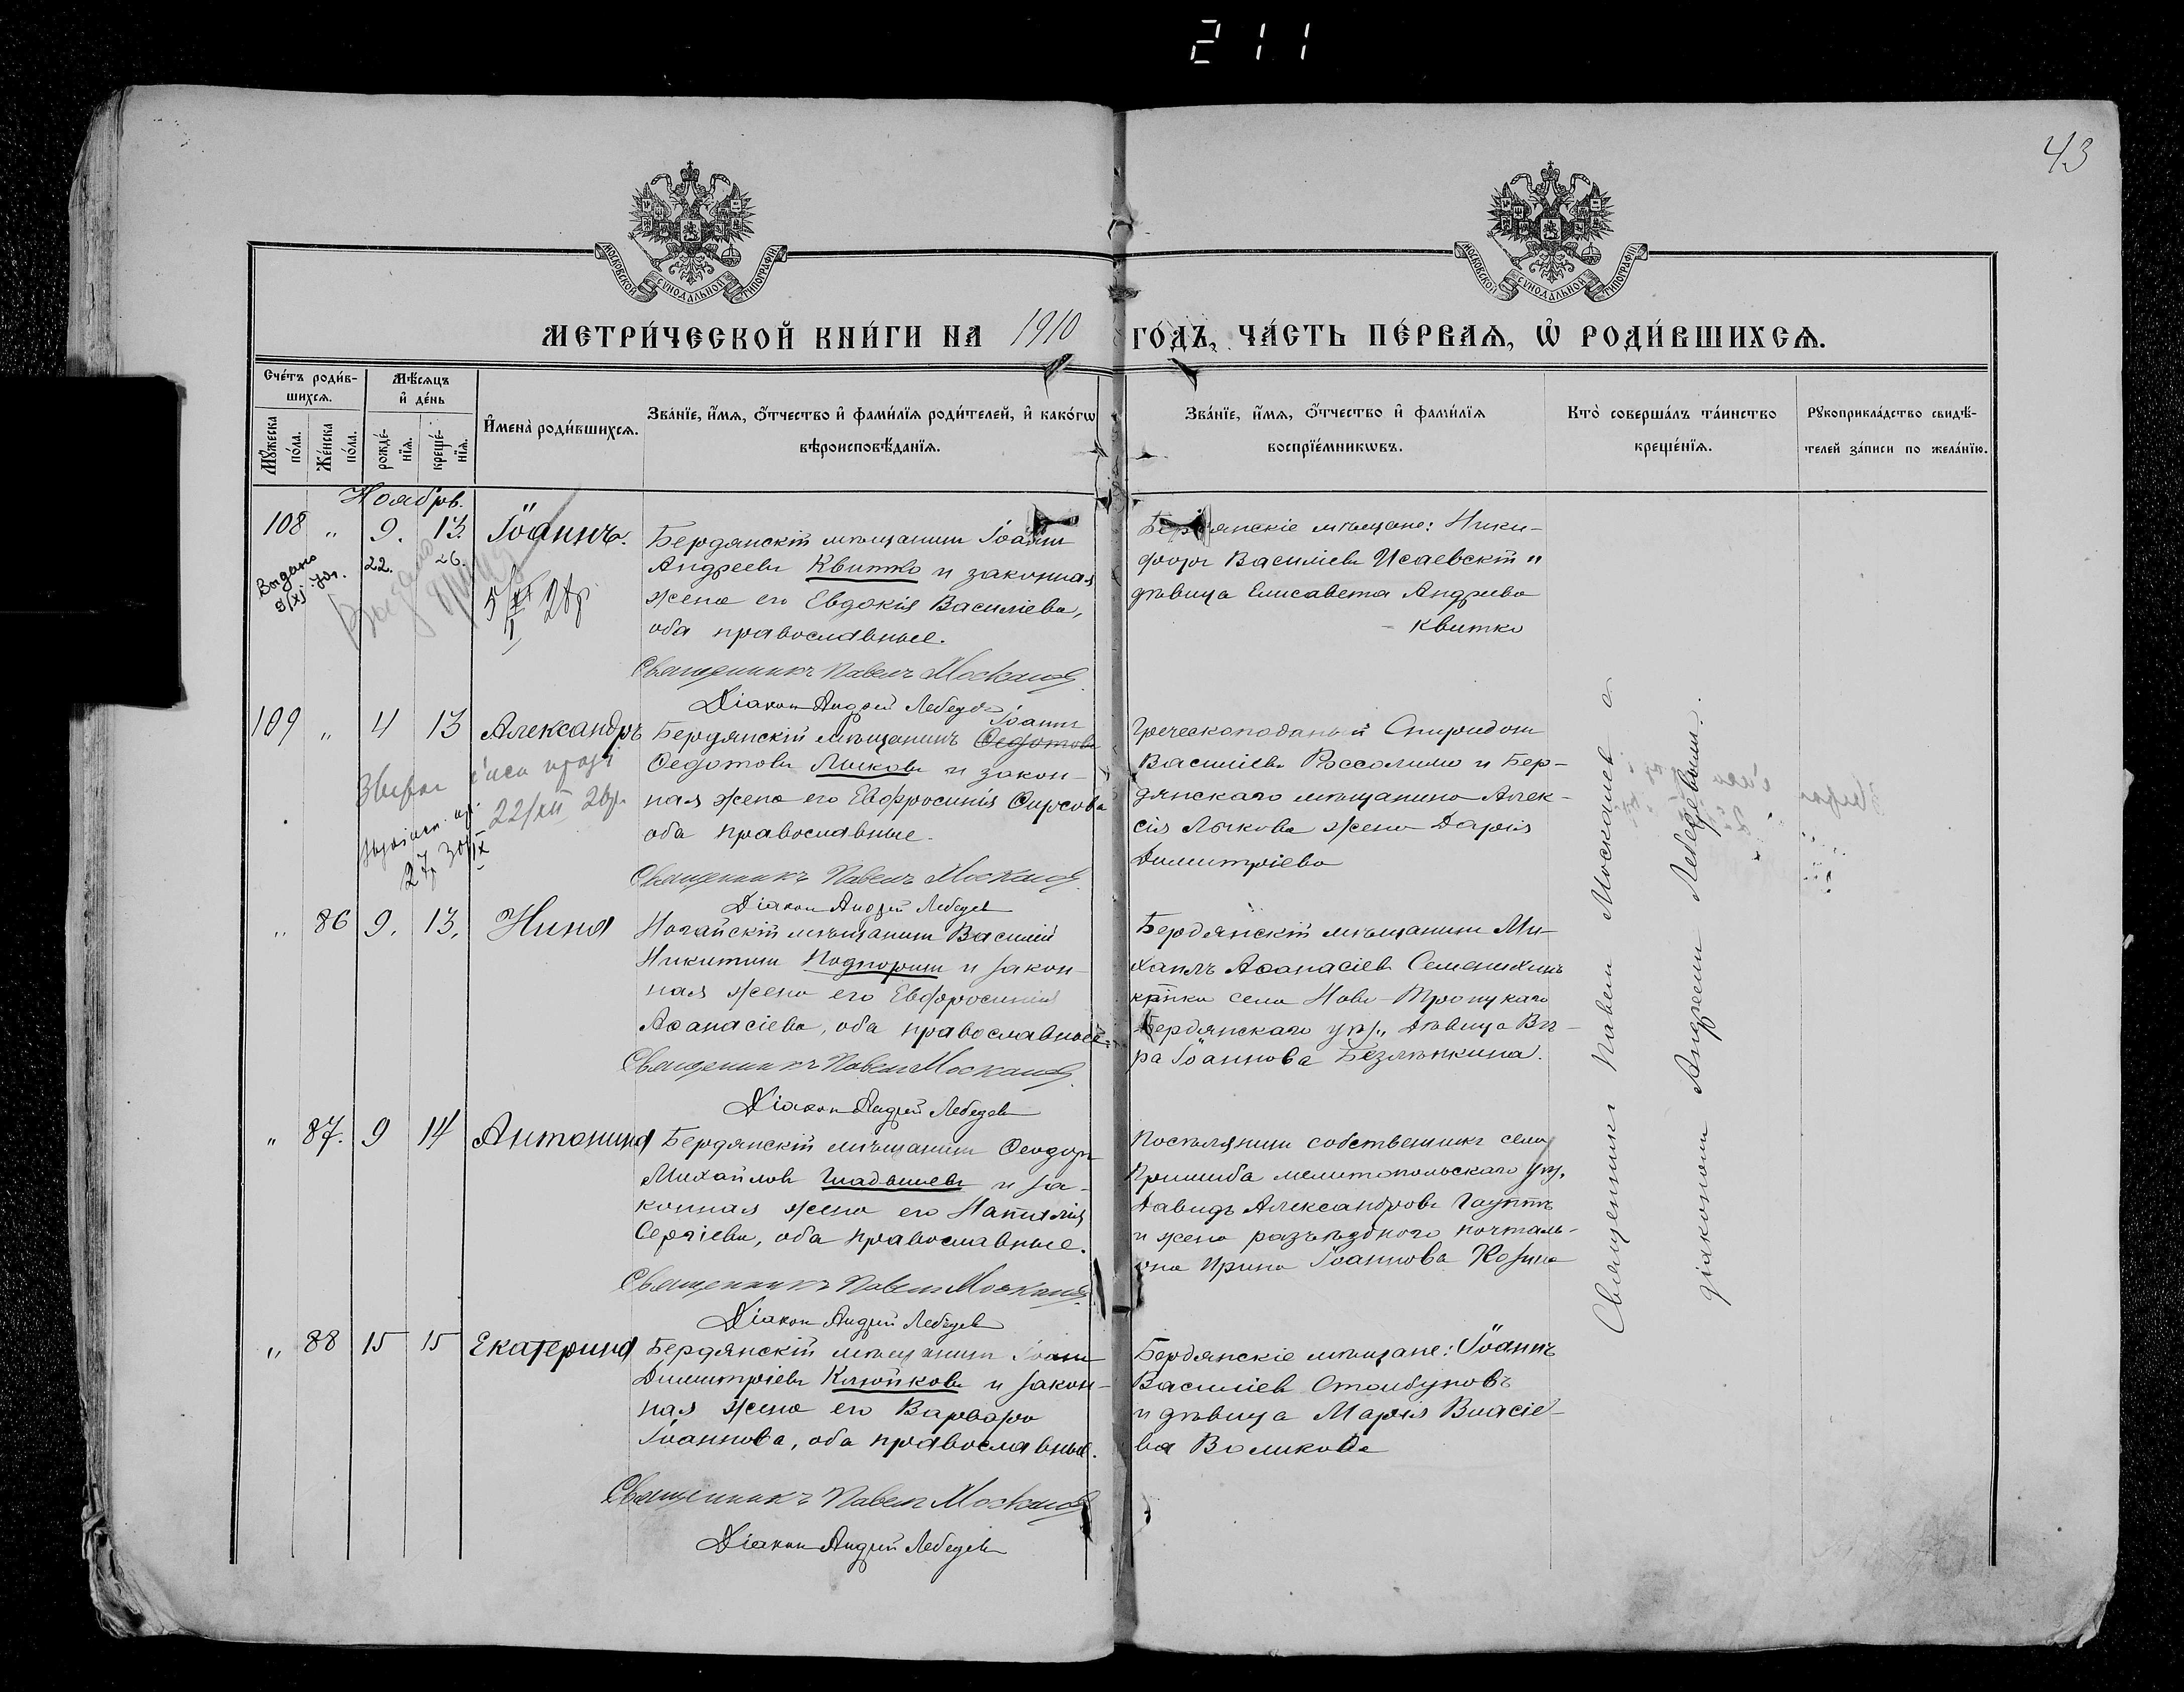 211
43
МОСКОВСКОЙ СѴНОДАЛЬНОЙ ТИПОГРАФІИ
МОСКОВСКОЙ СѴНОДАЛЬНОЙ ТИПОГРАФІИ
МЕТРИ́ЧЕСКОЙ КНИ́ГИ НА 1910 ГО́ДЪ, ЧА́СТЬ ПЕ́РВАѦ, Ѡ҆ РОДИ́ВШИХСѦ.
Сче́тъ роди́в-
шихсѧ.
Мꙋ́жеска
по́ла.
Же́нска
по́ла.
Мѣ́сѧцъ
и҆ де́нь
рожде́-
нїѧ.
креще́-
нїѧ.
И҆мена̀ роди́вшихсѧ.
Зва́нїе, и҆́мѧ, ѻ҆́тчество и҆ фами́лїѧ роди́телей, и҆ како́гѡ
вѣроисповѣ́данїѧ.
Зва́нїе, и҆́мѧ, ѻ҆́тчество и҆ фами́лїѧ
воспрїе́мникѡвъ.
Кто̀ соверша́лъ та́инство
креще́нїѧ.
Рꙋкоприкла́дство свидѣ́-
телей за́писи по жела́нїю.
Ноябрь.
108 " 9. 13. Іоаннъ.
22. 26.
Выдано
Бердянскій мѣщанинъ Іоаннъ
Андреевъ Квитко и законная
жена его Евдокія Василіева,
оба православные.
Священникъ Павелъ Москалевъ
Діаконъ Андрей Лебедев
Бердянскіе мѣщане: Ники-
форъ Василіевъ Исаевскій и
дѣвица Елисавета Андреева
Квитко
109 " 4 13 Александръ
22/XII 26 р.
Іоаннъ
Бердянскій мѣщанинъ Ѳедотовъ
Ѳедотовъ Лычковъ и закон-
ная жена его Евфросинія Ѳирсова
оба православные.
Священникъ Павелъ Москалевъ
Діаконъ Андрей Лебедев
Греческоподаный Спиридонъ
Василіевъ Россолимо и Бер-
дянскаго мѣщанина Алек-
сія Лычкова жена Дарія
Димитріева
" 86 9. 13. Нина
Ногайскій мѣщанинъ Василій
Никитинъ Подпоринъ и закон-
ная жена его Евфросинія
Аѳанасіева, оба православные.
Священникъ Павелъ Москалевъ
Діаконъ Андрей Лебедев
Бердянскій мѣщанинъ Ми-
хаилъ Аѳанасіевъ Семенихинъ
кр-нка села Ново-Троицкаго
Бердянскаго у., дѣвица Вѣ-
ра Іоаннова Безлѣпкина.
" 87. 9 14 Антонина
Бердянскій мѣщанинъ Ѳеодоръ
Михайловъ Гладышевъ и за-
конная жена его Наталія
Сергіева, оба православные.
Священникъ Павелъ Москалевъ
Діаконъ Андрей Лебедев
Поселянинъ собственникъ села
Пришиба мелитопольскаго у.
Давидъ Александровъ Гауптъ
и жена разъѣзднаго почталь-
она Ирина Іоаннова Козина
" 88 15 15 Екатерина
Бердянскій мѣщанинъ Іоаннъ
Димитріевъ Клюйковъ и закон-
ная жена его Варвара
Іоаннова, оба православные.
Священникъ Павелъ Москалевъ
Діаконъ Андрей Лебедев
Бердянскіе мѣщане: Іоаннъ
Василіев Столбуновъ
и дѣвица Марія Власіе-
ва Воликова
Священникъ Павелъ Москалевъ с
діакономъ Андреемъ Лебедевымъ.